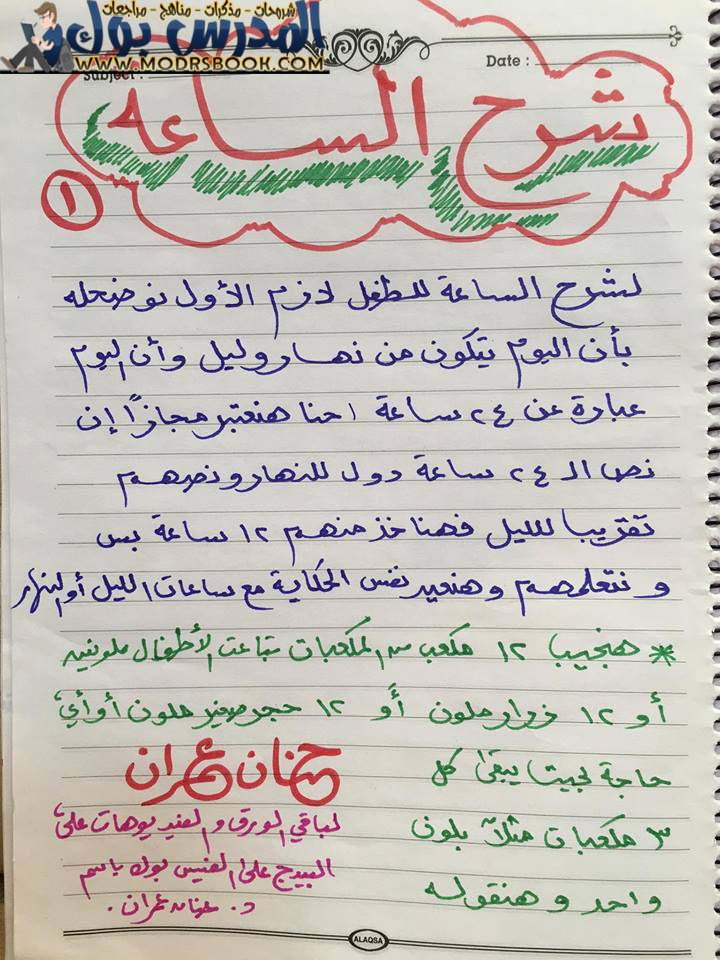 شروحات - مذكرات - مناهج - مراجعات
المدرس بوك
WWW.MODRSBOOK.COM
Subject :
Date :
شرح الساعه
١
لشرح الساعة للطفل لازم الأول نوضحله
بأن اليوم يتكون من نهار وليل وأن اليوم
عبارة عن ٢٤ ساعة احنا هنعتبر مجازًا إن
نص الـ ٢٤ ساعة دول للنهار ونصهم
تقريبا لليل فهناخد منهم ١٢ ساعة بس
ونتعلمهم وهنعيد نفس الحكاية مع ساعات الليل أو النهار
* هنجيب ١٢ مكعب من المكعبات بتاعت الأطفال ملونين
أو ١٢ زرار ملون أو ١٢ حجر صغير ملون أو أي
حاجة بحيث يبقى كل
٣ مكعبات مثلاً بلون
واحد وهنقوله
حنان عمران
لباقي الورق والفيديوهات على
البيدج على الفيس بوك باسم
د. حنان عمران.
ALAQSA